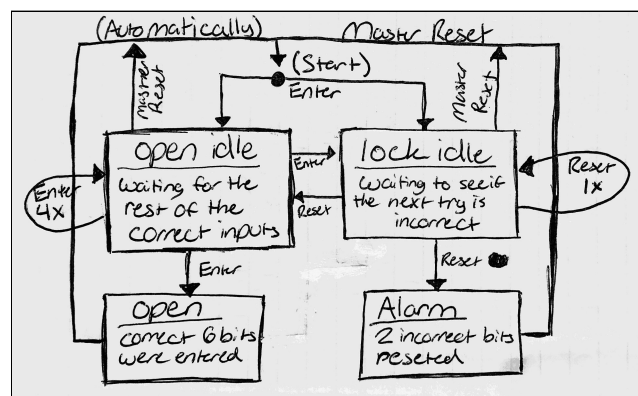 (Automatically)
Master Reset
(Start)
Enter
Master
Reset
Master
Reset
open idle
waiting for the
rest of the
correct inputs
Enter
Reset
lock idle
waiting to see if
the next try is
incorrect
Enter
4x
Reset
1x
Enter
Reset
Open
correct 6 bits
were entered
Alarm
2 incorrect bits
reseted